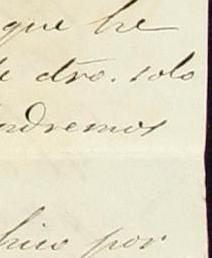 que he
de dro. solo
ndremos
hico por